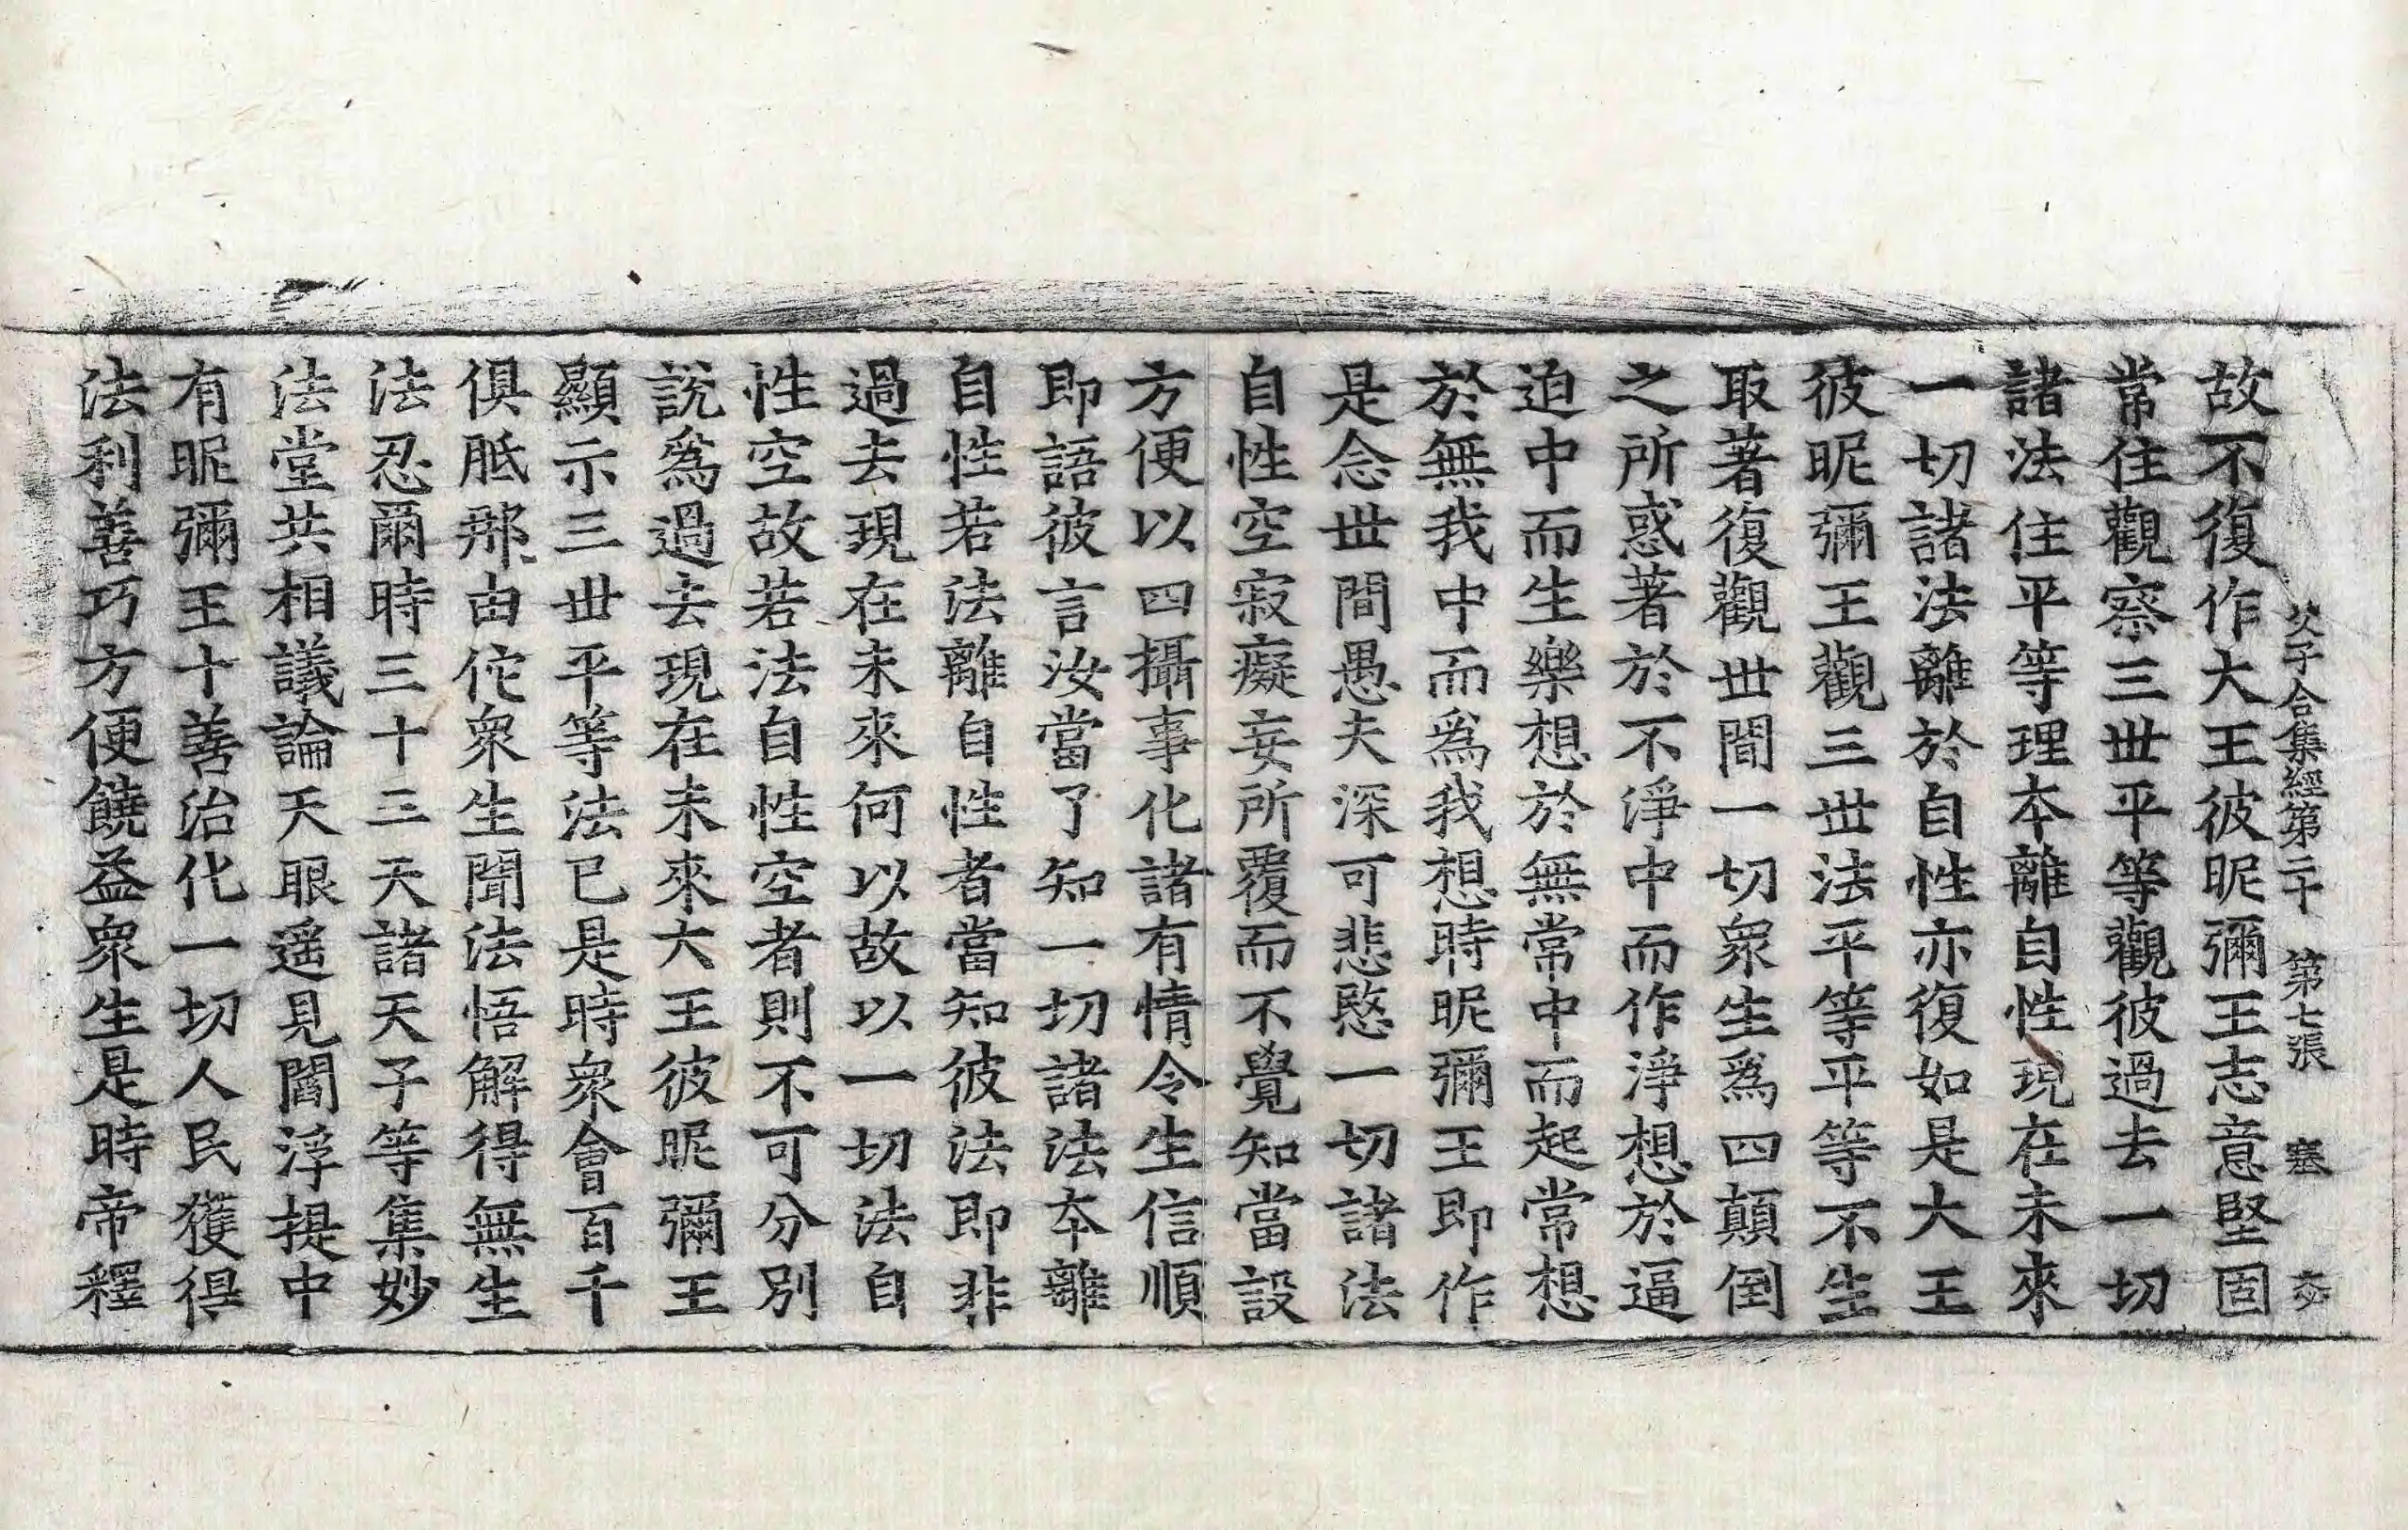 父子合集經第二十 第七張 塞
故不復作大王彼昵彌王志意堅固
常住觀察三世平等觀彼過去一切
諸法住平等理本離自性現在未來
一切諸法離於自性亦復如是大王
彼昵彌王觀三世法平等平等不生
取著復觀世間一切衆生爲四顛倒
之所惑著於不淨中而作淨想於逼
迫中而生樂想於無常中而起常想
於無我中而爲我想時昵彌王即作
是念世間愚夫深可悲愍一切諸法
自性空寂癡妄所覆而不覺知當設
方便以四攝事化諸有情令生信順
即語彼言汝當了知一切諸法本離
自性若法離自性者當知彼法即非
過去現在未來何以故以一切法自
性空故若法自性空者則不可分別
說爲過去現在未來大王彼昵彌王
顯示三世平等法已是時衆會百千
俱胝那由佗衆生聞法悟解得無生
法忍爾時三十三天諸天子等集妙
法堂共相議論天眼遥見閻浮提中
有昵彌王十善治化一切人民獲得
法利善巧方便饒益衆生是時帝釋